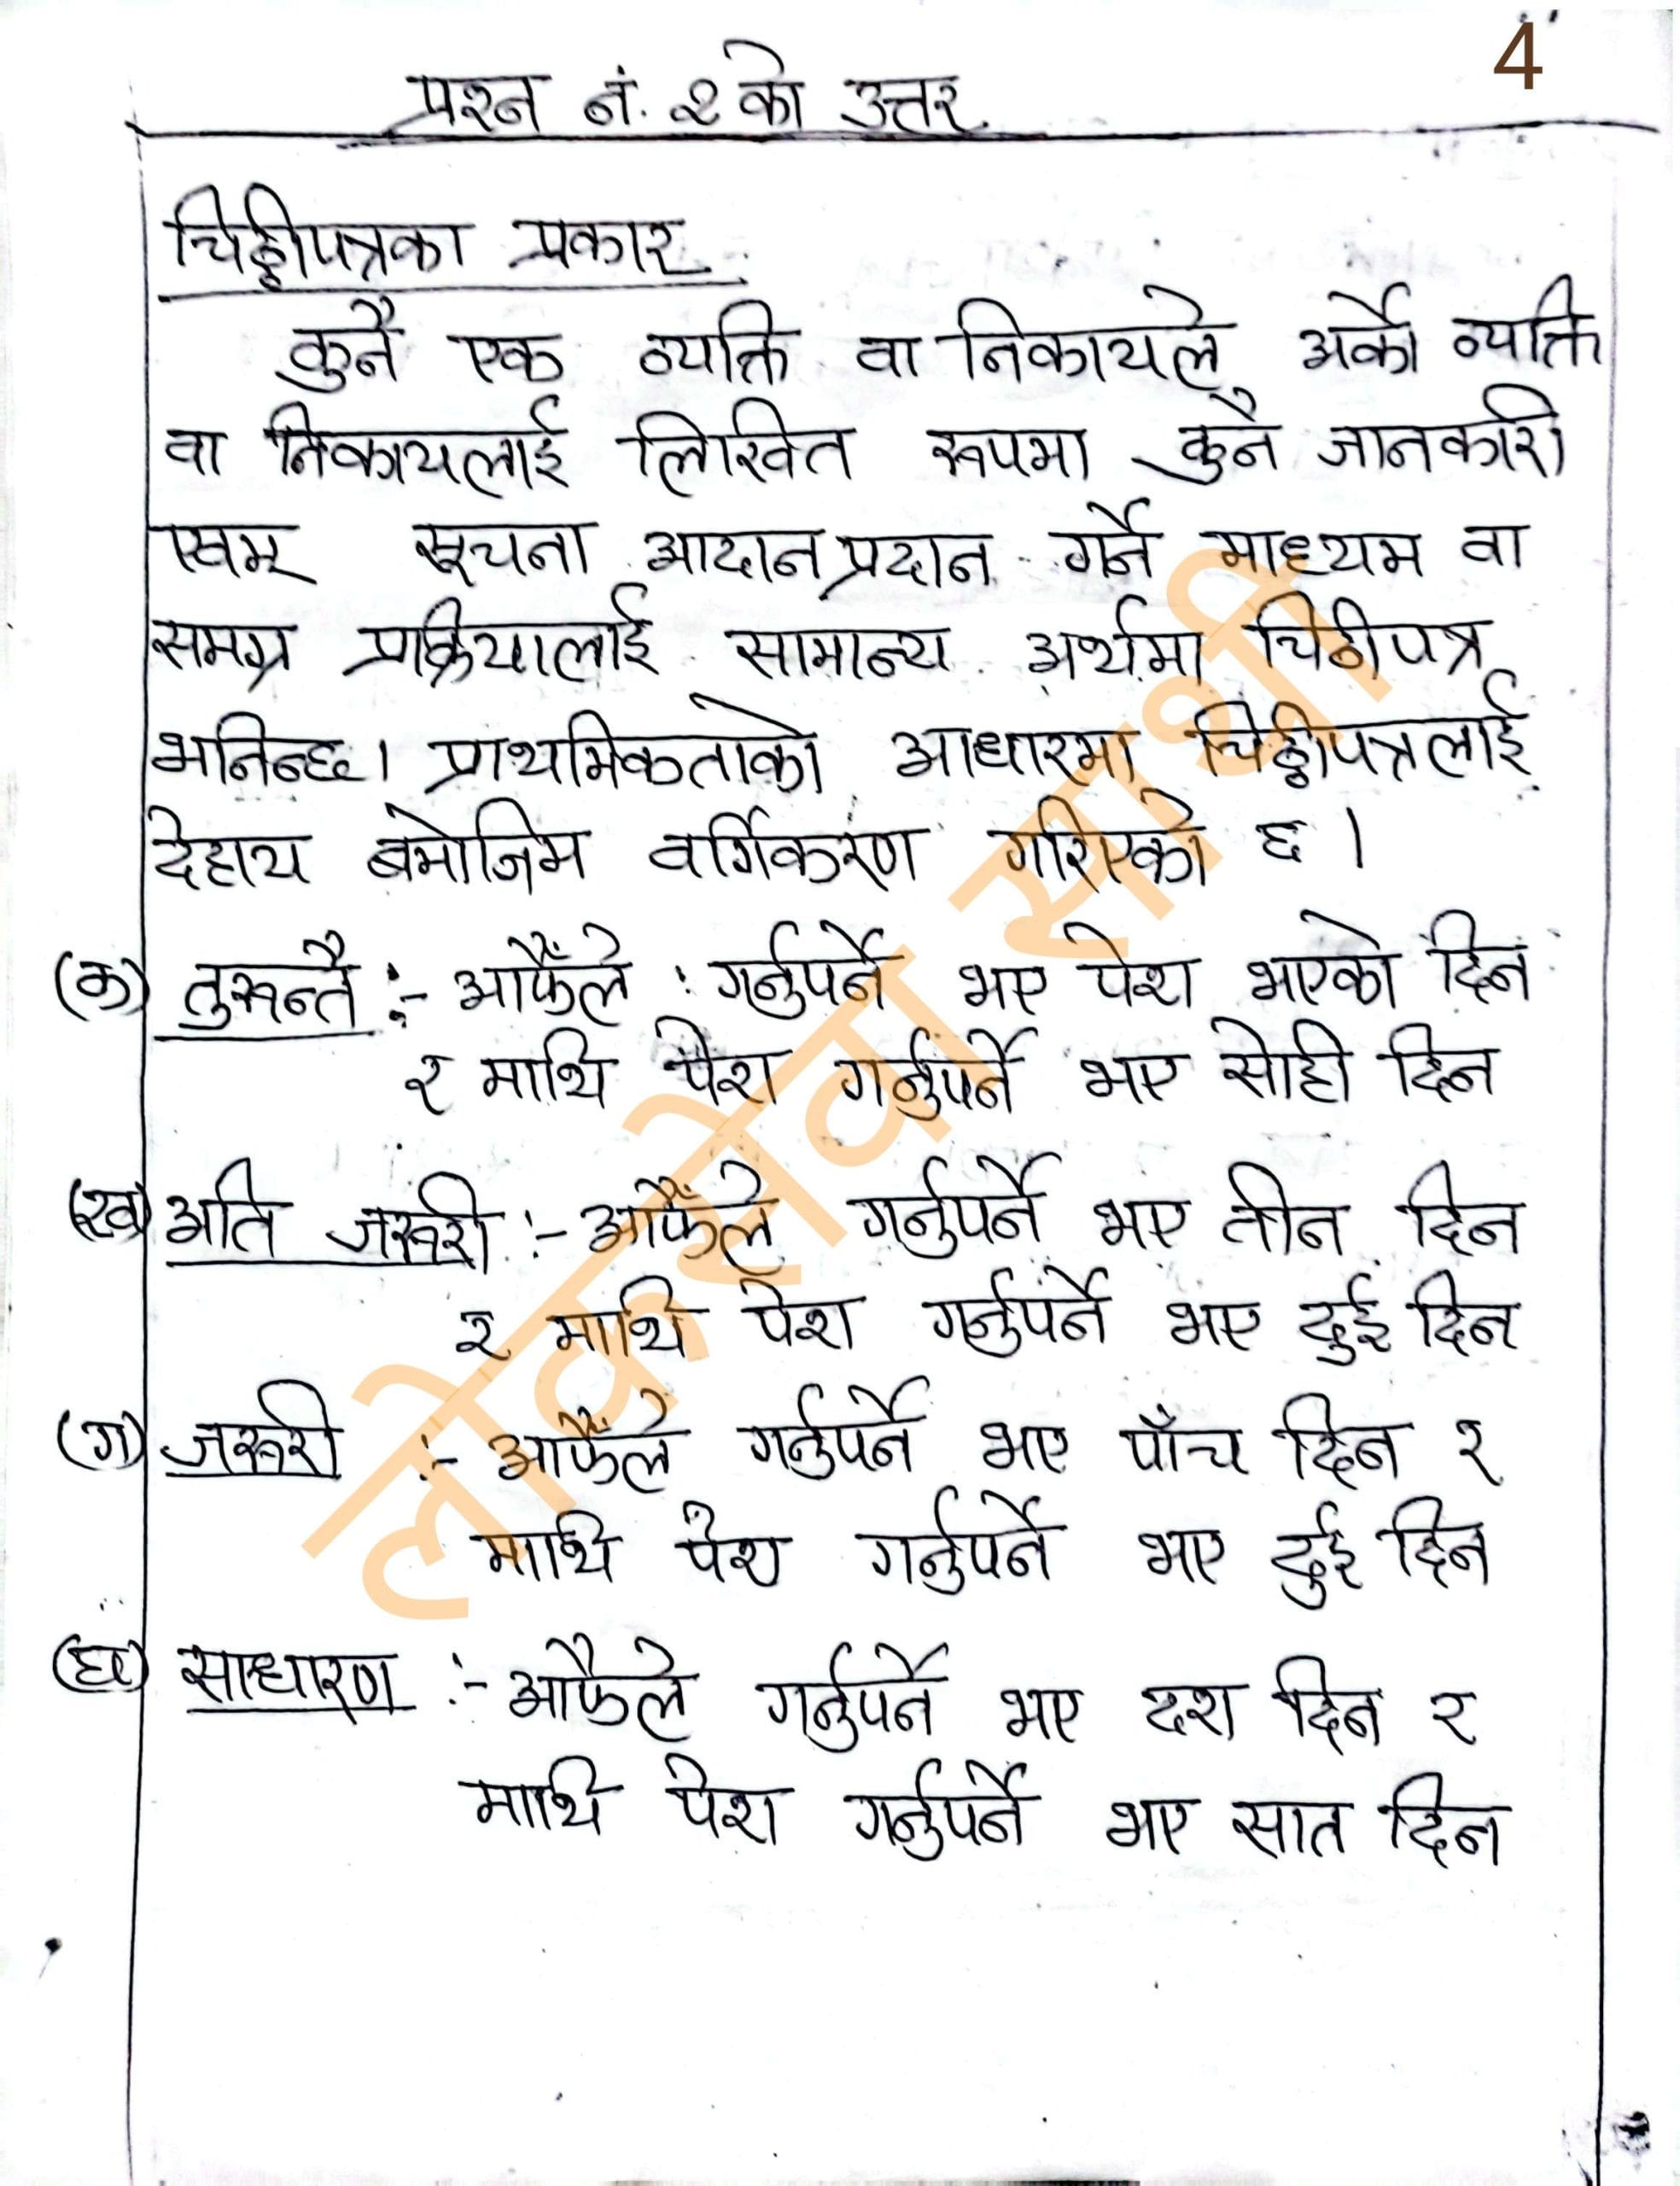 4
प्रश्न नं. २ को उत्तर
चिठ्ठीपत्रका प्रकार
कुनै एक व्यक्ति वा निकायले अर्को व्यक्ति
वा निकायलाई लिखित रूपमा कुनै जानकारी
एवम् सूचना आदान प्रदान गर्ने माध्यम वा
समग्र प्रक्रियालाई सामान्य अर्थमा चिठीपत्र
भनिन्छ। प्राथमिकताको आधारमा चिठ्ठीपत्रलाई
देहाय बमोजिम वर्गिकरण गरिएको छ।
(क) तुरून्तै :- आफैंले गर्नुपर्ने भए पेश भएको दिन
र माथि पेश गर्नुपर्ने भए सोही दिन
(ख) अति जरूरी :- आफैंले गर्नुपर्ने भए तीन दिन
र माथि पेश गर्नुपर्ने भए दुई दिन
(ग) जरूरी :- आफैंले गर्नुपर्ने भए पाँच दिन र
माथि पेश गर्नुपर्ने भए दुई दिन
(घ) साधारण :- आफैले गर्नुपर्ने भए दश दिन र
माथि पेश गर्नुपर्ने भए सात दिन
लोकसेवा साथी